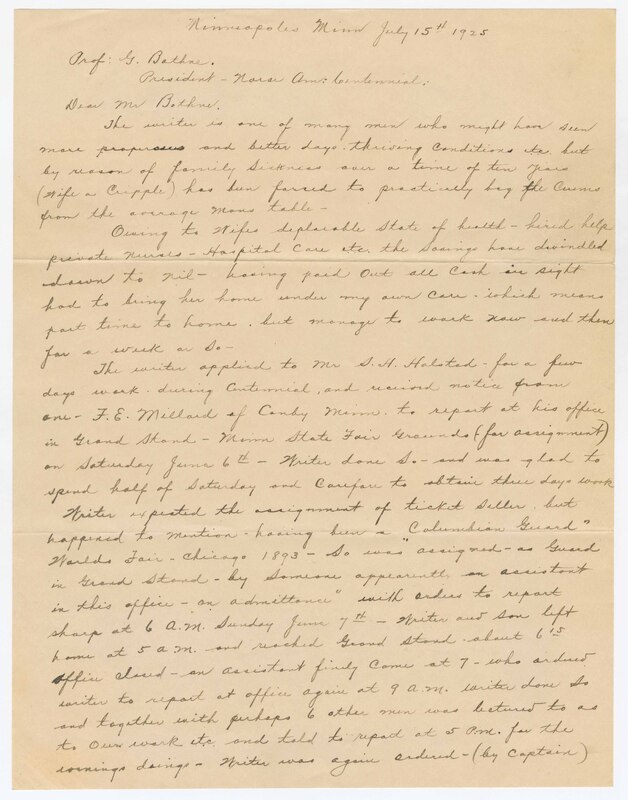 Minneapolis Minn July 15th 1925
Prof: G. Bothne.
President - Norse Am: Centennial.
Dear Mr Bothne.
The writer is one of many men who might have seen
more properous and better days. thriving Conditions etc. but
by reason of family Sickness over a time of ten years
(Wife a Cripple) has been forced to practically beg the Crums
from the average mans table -
Owing to Wifes deplorable State of health - hired help
private Nurses - Hospital Care etc. the Savings have dwindled
down to Nil - having paid Out all Cash in sight
had to bring her home under my own Care. which means
part time to home. but manage to work now and then
for a week or So -
The writer applied to Mr S. H. Holstad - for a few
days work. during Centennial, and received notice from
one - F. E. Millard of Canby Minn. to report at his office
in Grand Stand - Minn State Fair Grounds (for assignment)
on Saturday June 6th - Writer done So - and was glad to
spend half of Saturday and Carefare to obtain three days work
Writer expected the assignment of ticket Seller, but
happened to mention - having been a "Columbian Guard"
Worlds Fair - Chicago 1893 - So was assigned - as Guard
in Grand Stand - by Someone apparently an assistant
in this office - on admittance" with orders to report
sharp at 6 A.M. Sunday June 7th - Writer and Son left
home at 5 A.M. and reached Grand Stand about 6 15
office Closed - an assistant finly Came at 7 - who ordered
writer to report at office again at 9 A.M. writer done So
and together with perhaps 6 other men was lectured to as
to Our work etc and told to report at 5 P.M. for the
evenings doings - Writer was again ordered - (by Captain)